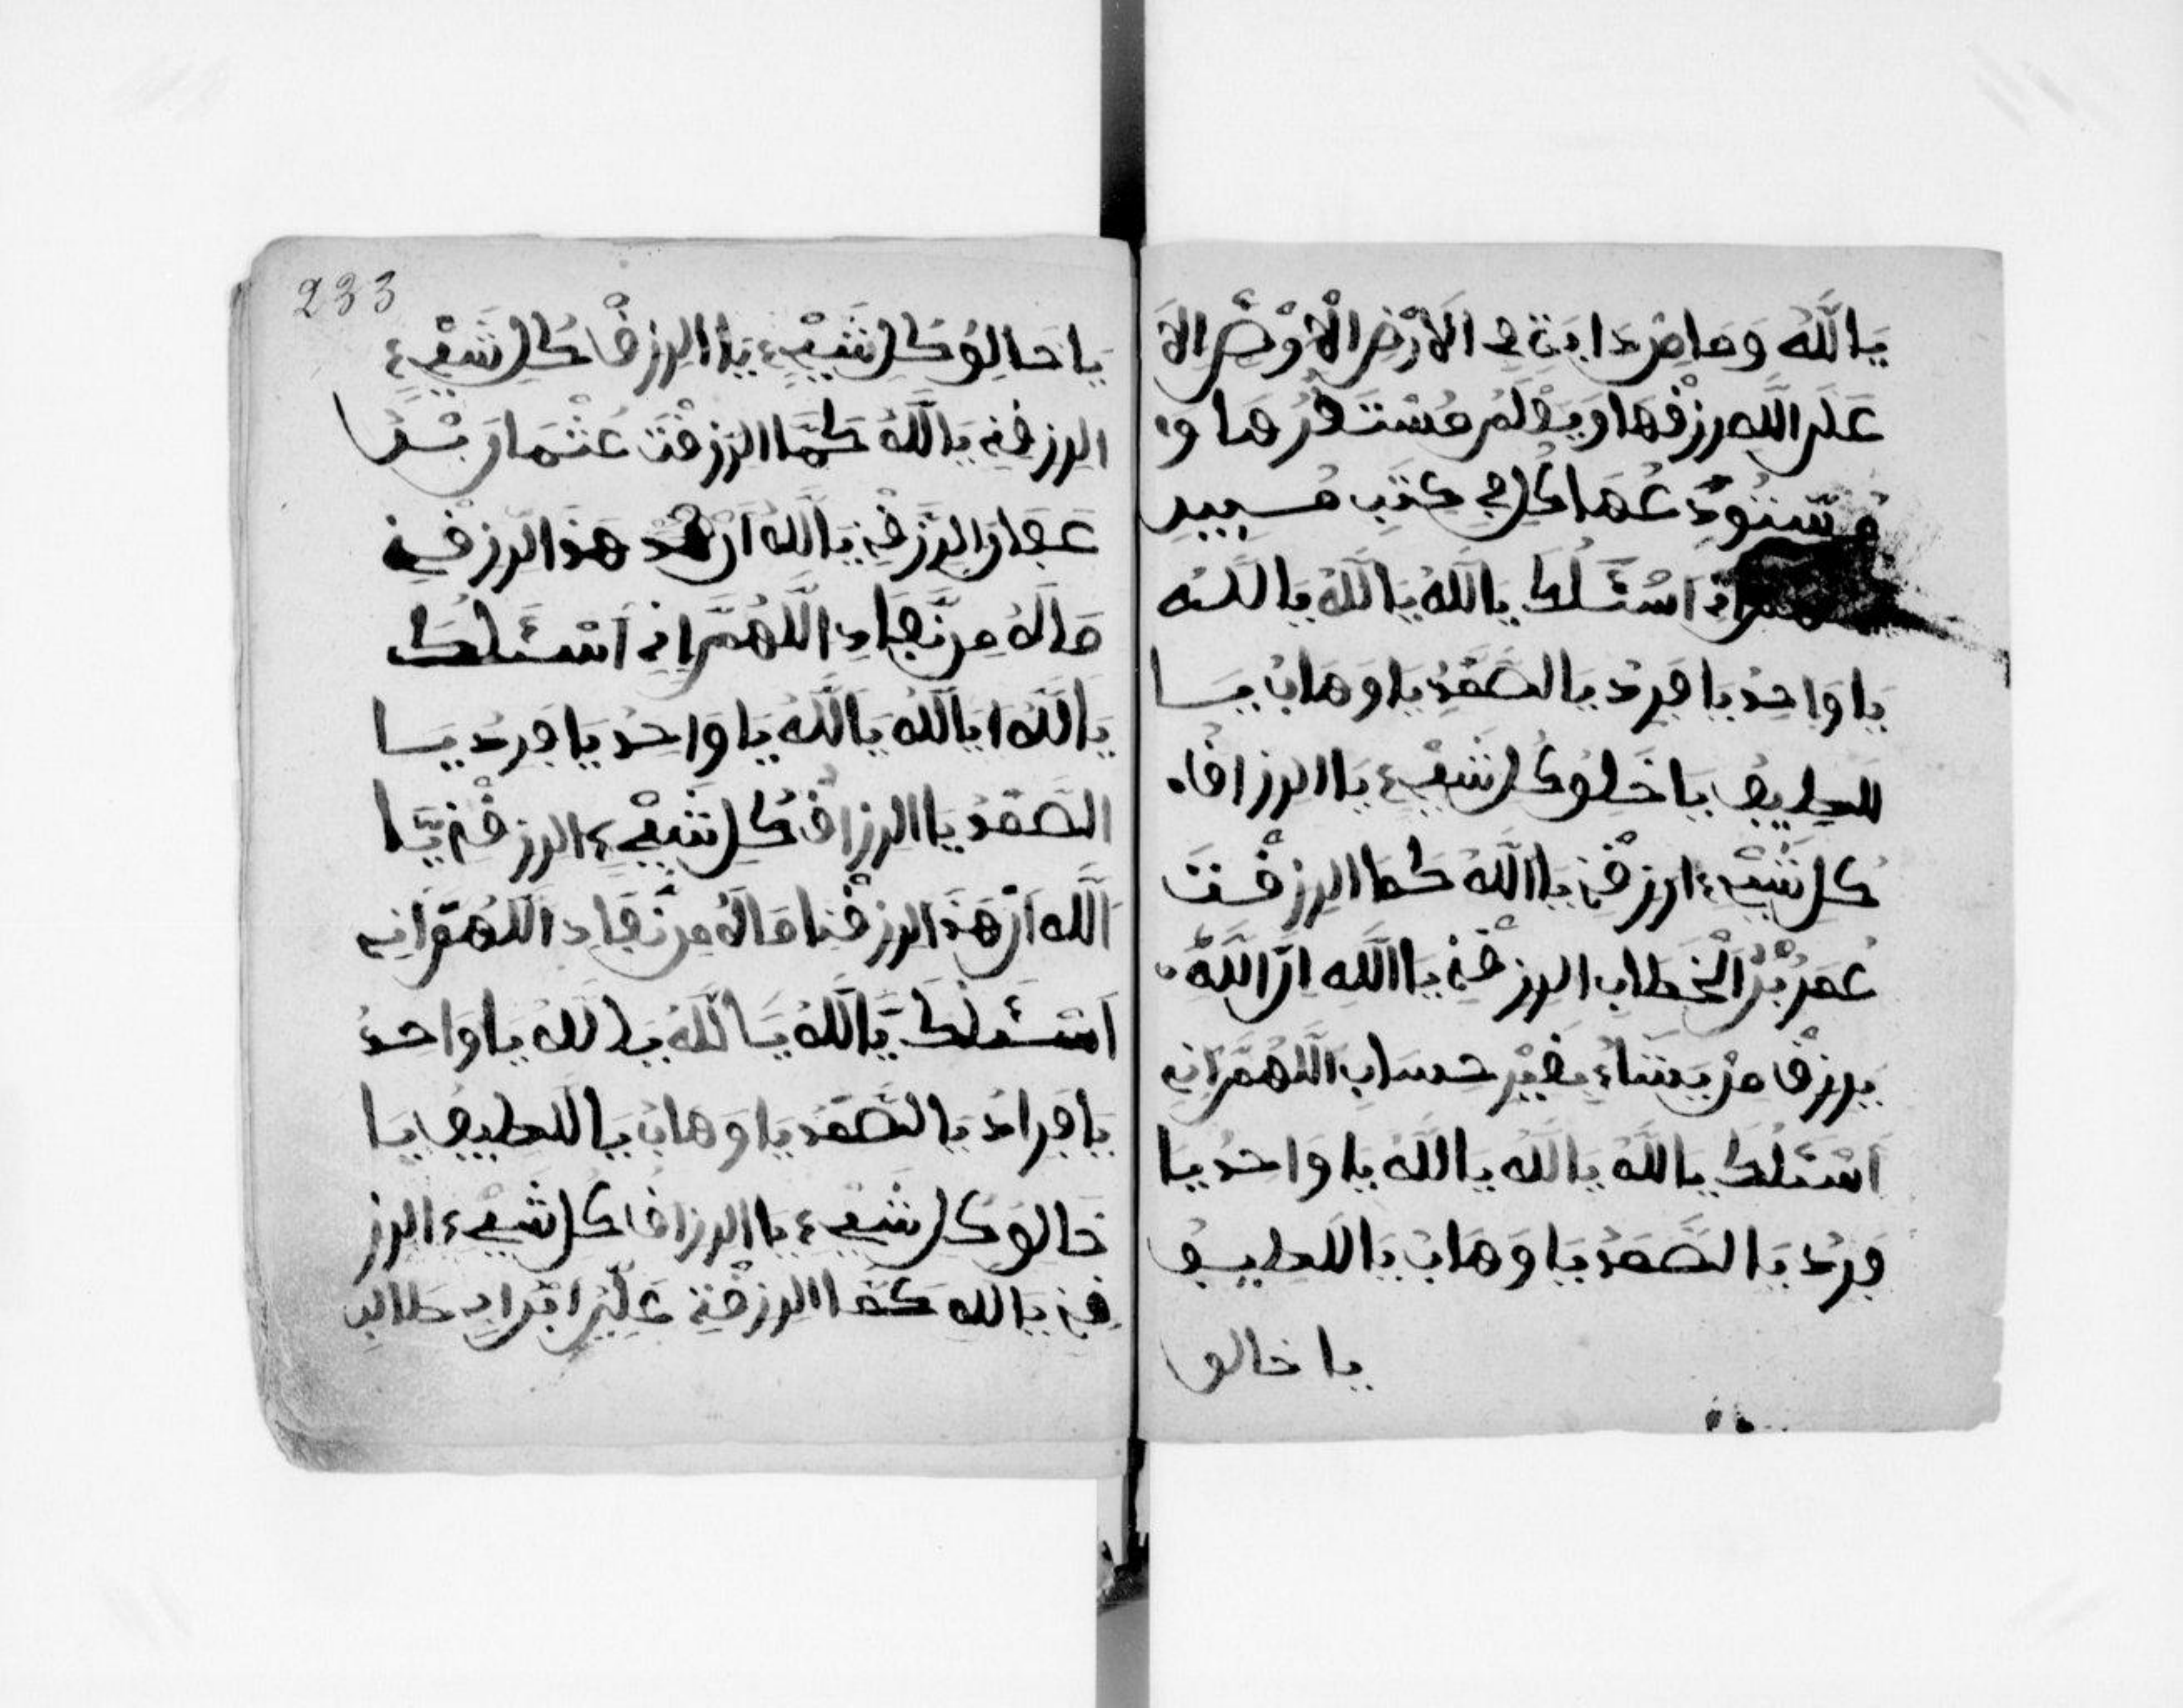 يَاللَّه وَمَا مِن دَابَةٍ فِي الَارْضِ الْاَرْضِ الاَ
عَلَى اللَّهِ رِزْقُهَا وَيَعْلَمُ مُسْتَقَرُّهَا وَ
مُسْتَوْدَعُهَا كُل فِي كِتَبٍ مُبِيدٍ
انِي اَسْئَلُكَ يَاللَّهُ يَاللَّهُ يَاللَّه
يَا وَاحِدُ يَا فَرِدُ يَا الصَّمَدُ يَا وَهَابُ يَا
للطِيفُ يَا خَلِقُ كُل شَيْءٍ يَا الرزاقُ
كُل شَيْءٍ ارْزُقْنِي يَا اللَّهُ كَمَا الرزقْتَ
عُمَرُ بْنُ الْخَطَابِ الرزقْنِي يَا اللَّه انَّ اللَّهَ
يَرْزُقُ مَنْ يَشَاءُ بِغَيْرِ حِسَابٍ اللَّهُمَّ انِي
اَسْئَلُكَ يَاللَّهُ يَاللَّه يَاللَّهُ يَا وَاحدُ يَا
فَرِدُ يَا الصَّمَدُ يَا وَهَابُ يَا اللطِيفُ
يا خالق
233
يَا خالِقُ كُلِ شَيْءٍ يَا الرِزقُ كُلِ شَيْءٍ
الرزقْنِي يَاللَّهُ كَمَا الرَزقْتَ عُثْمَانَ بْنُ
عَفَانَ الرَزقْنِي يَاللَّهُ انْ هَذَ الرزقْنِي
مَالَهُ مِن نَّفَادٍ اللَّهُمَّ انِي اَسْئَلُكَ
يَاللَّهُ ايَاللَّه يَاللَّه يَا وَاحِدُ يَا فَرِدُ يَا
الصَّمَدُ يَا الرزاقُ كُلِ شَيْءٍ الرزقْنِي يَا
اَللَّه اَنْ هَذَ الرزقْنَا مَالَهُ مِن نَّفَادِ اللَّهُمَّ انِي
اَسْئَلُكَ يَاللَّهُ يَاللَّهُ يَاللَّهُ يَا وَاحدُ
يَا فَرادُ يَا الصَّمَدُ يَا وَهَابُ يَا اللطِيفُ يَا
خَالِقُ كُل شَيْءٍ يَا الرزاقُ كُل شَيْءٍ الرز
قْنِي يَاللَّه كَمَا الرزقْنِي عَلِيِّ ابْنِ ابِ طالِبِ